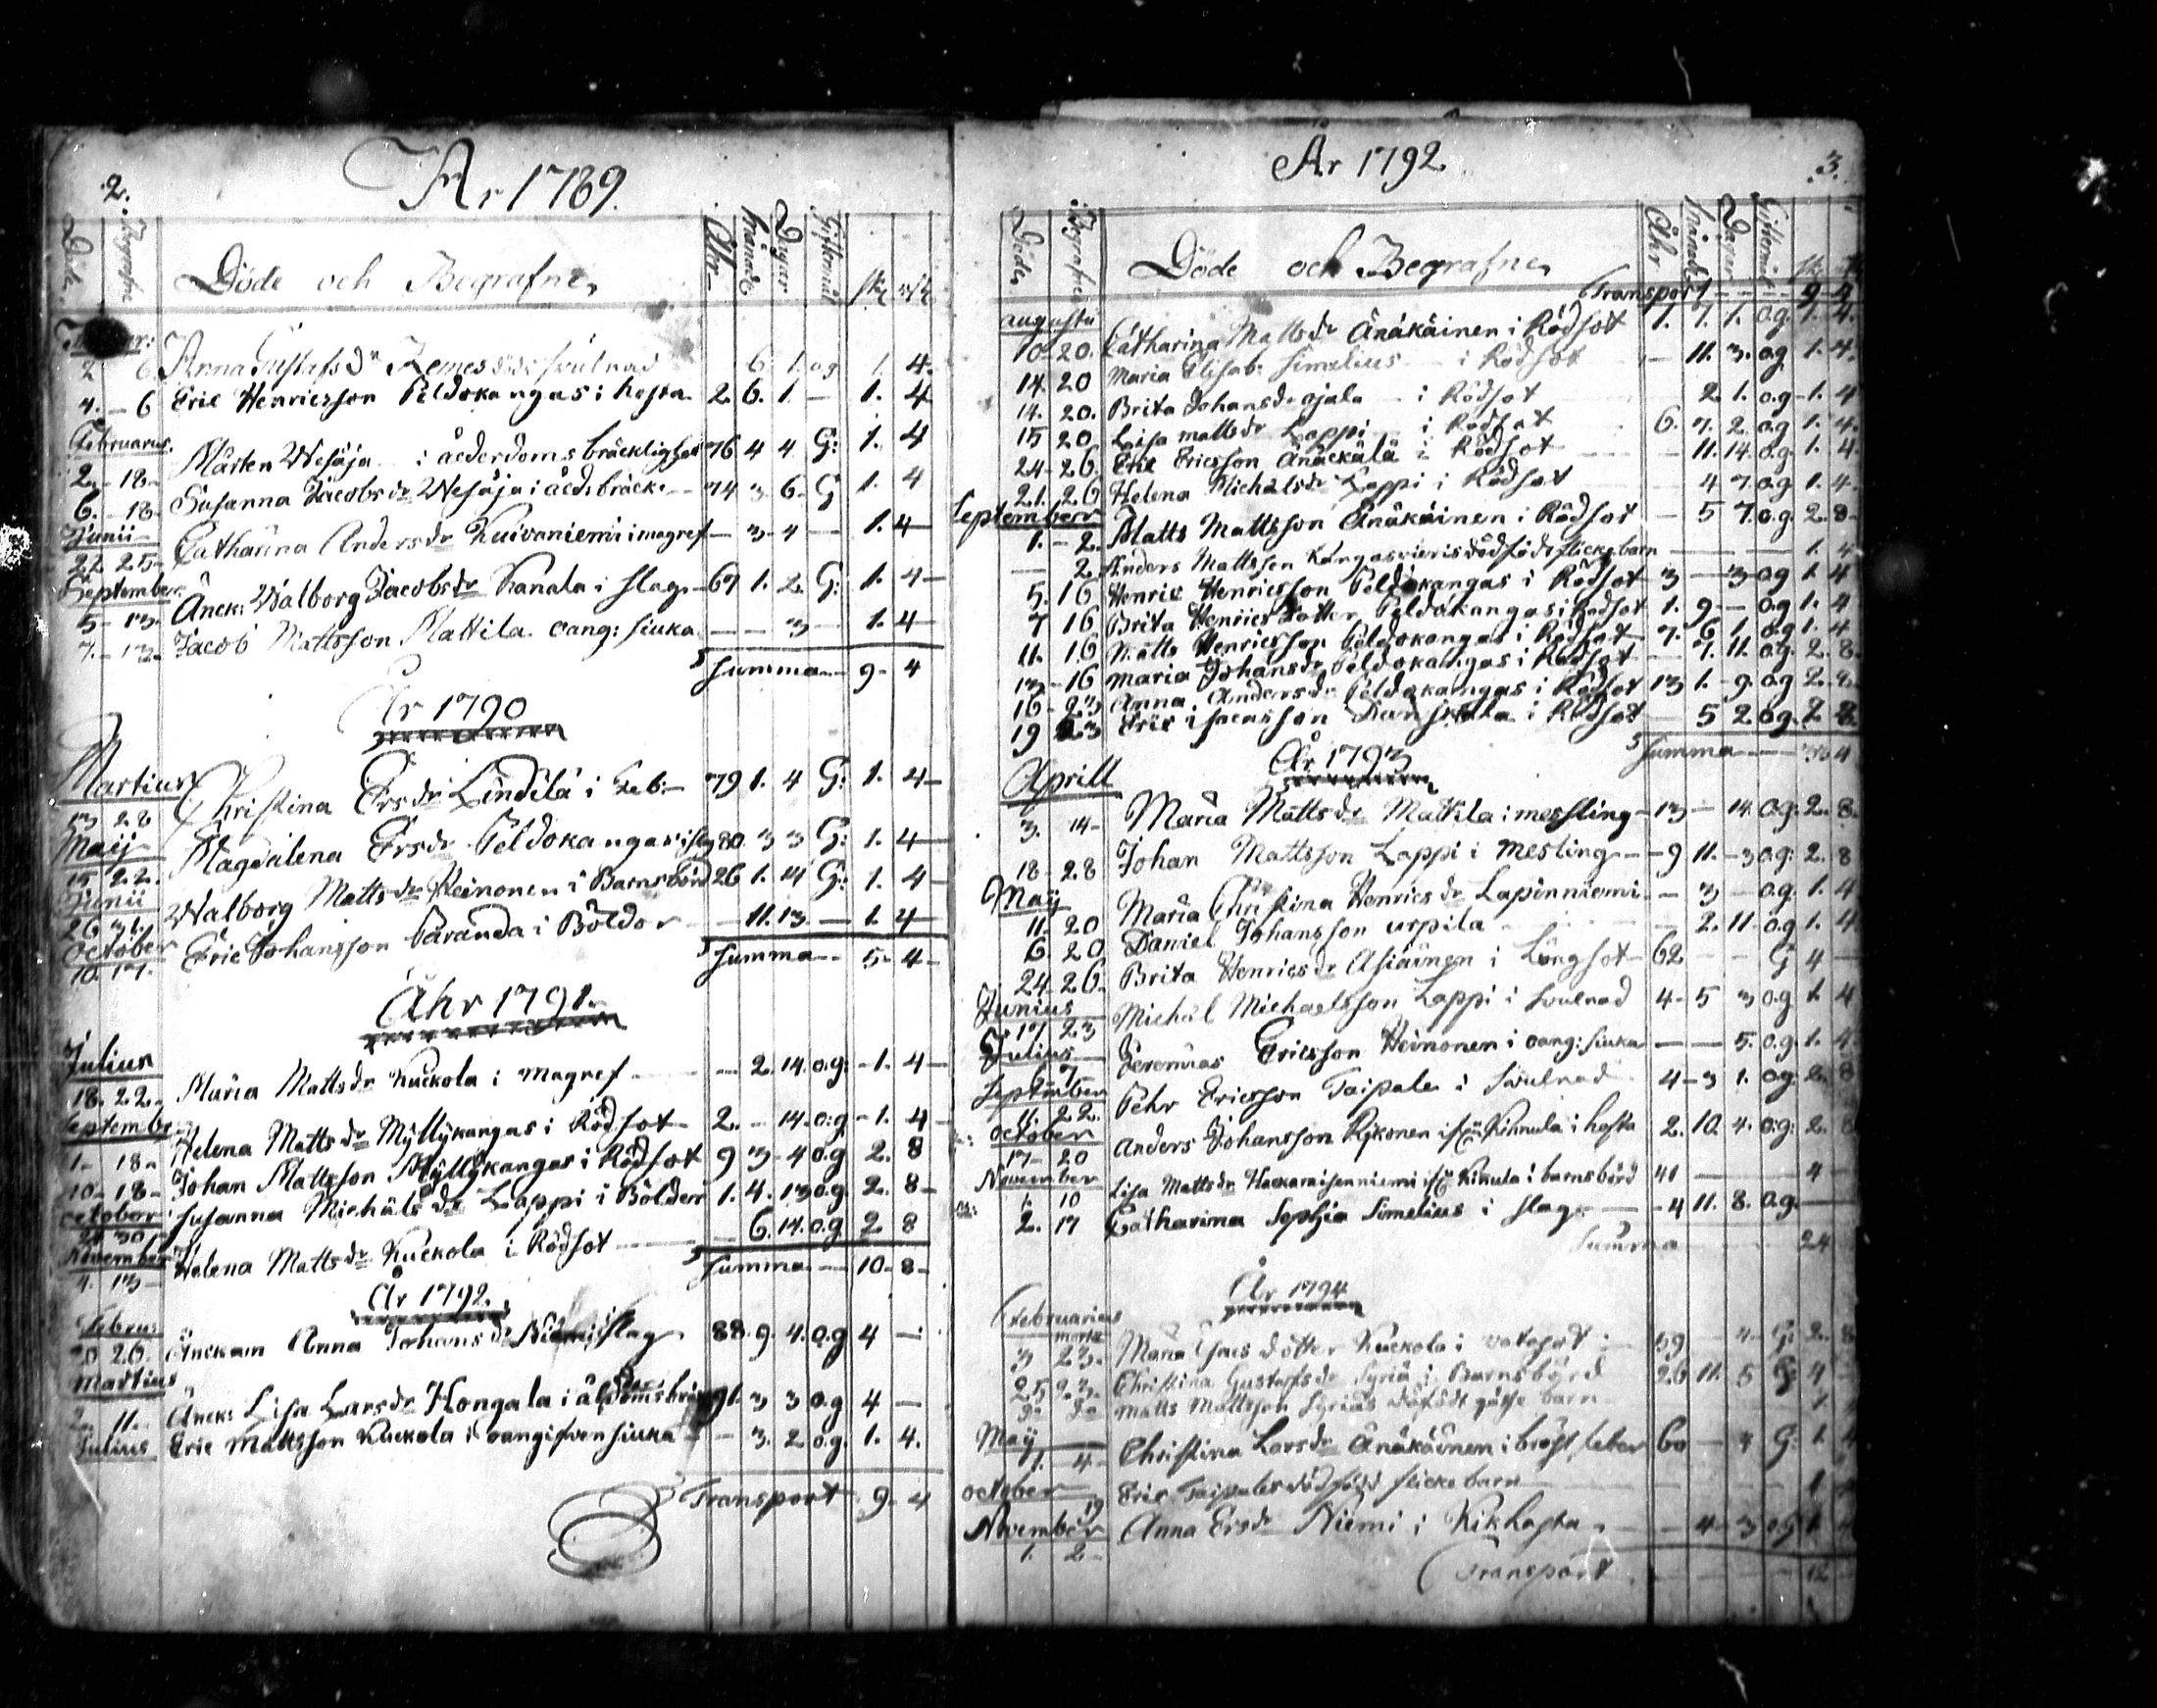 2.
År 1789.
Döde. Begrafne
Döde och Begrafne
Åhr Månad Dagar Giftermål sk rst
2 6 Anna Gustafs Dr Remes 6. 1. og 1. 4.
4. - 6 Eric Henricsson Peldokangas i hosta 2. 6. 1. - 1. 4
Februarius
2. - 18. Mårten Wesäja i ålderdoms bräcklighet 76 4 4 G: 1. 4
6. - 18. Susanna Jacobs dr Wesäja i ålds bräck. 74 3 6. G 1. 4
Junii
22 25 Catharina Anders dr Kuivaniemi i magref - 3 - 4 - 1. 4
September
5 - 13. Änck: Walborg Jacobs dr Kanala i slag. 67 1. 2. G: 1. 4
7. - 13. Jacob Mattsson Mattila oang: siuka - - 3 - 1. 4
Summa 9 - 4
År 1790
Martius
13 28 Christina Ersdr Lindilä i Feb. 79 1. 4 G: 1. 4
Maij
15 22. Magdalena Ersdr Peldokangas i slag 80 3 3 G: 1. 4
Junii
26 31. Walborg Matts dr Keinonen i Barnsbörd 26 1. 14 G: 1. 4
October
10. 17. Eric Johansson Paranda i Böldor - 11. 13. - 1. 4
Summa 5 - 4
Åhr 1791.
Julius
18. 22. Maria Matts dr Kuckola i magref - 2. 14. o.g. 1. 4
September
1. 18. Helena Matts dr Myllykangas i Rödsot 2. - 14. o.g 1. 4
10 - 18 - Johan Mattsson Myllykangas i Rödsot 9 3 - 4 o.g 2. 8
October
Susanna Michäls dr Lappi i Bölder 1. 4. 13 o.g. 2. 8
November
4. 13 Helena Matts dr Kuckola i Rödsot 6. 14. o.g. 2 8
Summa 10 - 8
År 1792.
Febru:
20 26. Änckan Anna Johans dr Niemi i slag 88. 9. 4. o.g 4 -
Martius
2. 11. Änck: Lisa Lars dr Hongala i ålderdoms bräck 91. 3 3 o.g 4 -
Julius Eric Mattsson Kuckola i oangifven siuka - 3. 2 o.g. 1. 4.
Transport 9 - 4
År 1792
3.
Döde Begrafne
Döde och Begrafne
Åhr Månader Dagar Giftermål sk
Transport 9 4
Augusti
10 20. Catharina Matts dr Änäkäinen i Rödsot 1. 7. 1. o.g. 1. 4.
14. 20 Maria Elisab: Simelius i Rödsot - 11. 3. o.g 1. 4.
14. 20. Brita Johans dr Ojala i Rödsot 2. 1. o.g 1. 4
15 20 Lisa Matts dr Lappi i Rödsot 6. 7. 2. o.g 1. 4.
24 - 26. Eric Ericsson Änäckälä i Rödsot 11. 14. o.g. 1. 4
21. 26 Helena Michäls dr Lappi i Rödsot 4 7. o.g 1. 4.
September
1. - 2. Matts Mattsson Änäkäinen i Rödsot - 5 7. o.g. 2. 8
2. Anders Mattsson Kangasvieris dödfödt flickebarn 1. 4
5. 16 Henric Henricsson Peldokangas i Rödsot 3 - 3 o.g 1. 4
7 16 Brita Henrics dotter Peldokangas i Rödsot 1. 9 - o.g 1. 4
11. 16 Matts Henricsson Peldokangas i Rödsot 7. 6 1. o.g 1. 4
13 - 16 Maria Johans dr Peldokangas i Rödsot - 7. 11. o.g. 2. 8.
16 - 23 Anna Anders dr Peldokangas i Rödsot 13 1. - 9. o.g 2. 8
19 23 Eric Isacsson i Rödsot 5 2 o.g. 2. 8
Summa 36 4
År 1793
Aprill
3. 14 Maria Matts dr Mattila i messling 13 - 14. o.g. 2. 8.
18 - 28 Johan Mattsson Lappi i mesling 9 11. - 3 o.g: 2. 8
Maij
11. 20 Maria Christina Henrics dr Lapinniemi - 3 - o.g. 1. 4
6. 20 Daniel Johansson Urpila 2. 11. o.g 1. 4
24 - 26. Brita Henrics dr Asiainen i Lungsot 62 G 4 -
Junius
17 23 Michäl Michaelsson Lappi i svulnad 4 - 5 3 o.g 1. 4
Julius
7 Jeremias Ericsson Keinonen i oang: siuka - - 5. o.g. 1. 4.
September
11. 22. Pehr Ericsson Taipale i svulnad 4 - 3 1. o.g: 2. 8
October
17 - 20 Anders Johansson Rykonen Kihnula i hosta 2. 10. 4. o.g: 2. 8
November
1. 10 Lisa Matts dr Hackaraisenniemi Kihnula i barnsbörd 41 4 -
2. 17 Catharina Sophia Simelius i slag - 4 11. 8. o.g.
Summa 24
År 1794
Februarius
3 23. Maria dotter Kuckola i 59 - 4. G: 2. 8
25 23. Christina Gustafs dr Syriä i Barnsbörd 26 11. 5 G 4
do do Matts Mattsson Syriäs dödfödt gåsse barn
Maij
1. 4 - Christina Lars dr Änäkäinen i bröst feber 60 - 4 G: 1. 4
October
19 Eric Taipales dödfödd flicke barn
November
1. 2 - Anna Ersdr Niemi i Kikhosta - 4 - 3 o.g 1. 4
Transport 12